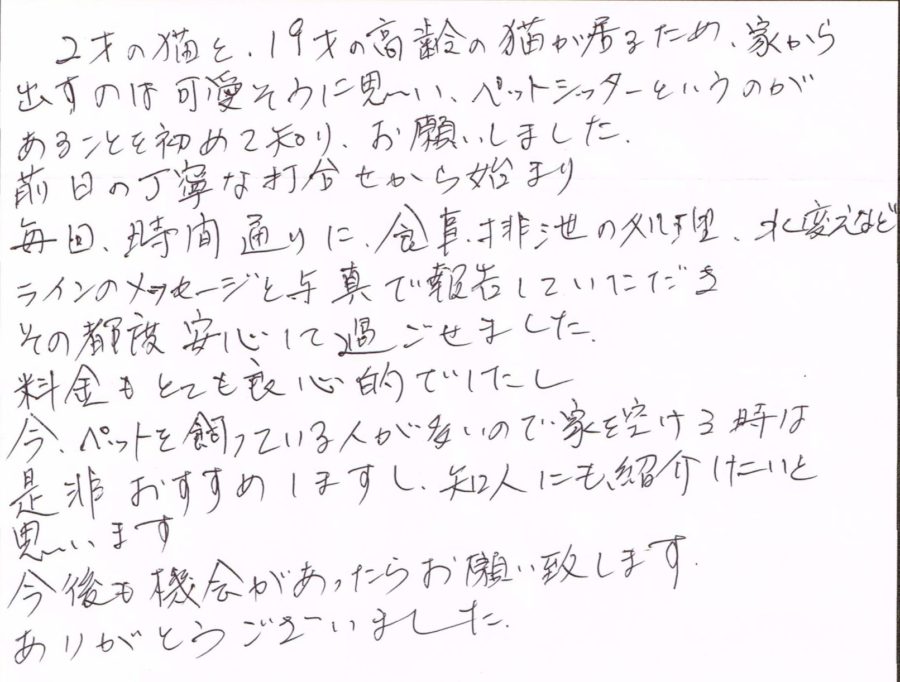 2才の猫と、19才の高齢の猫が居るため、家から
出すのは可愛そうに思い、ペットシッターというのが
あることを初めて知り、お願いしました.
前日の丁寧な打合せから始まり
毎回、時間通りに、食事、排池の処理、水変えなど
ラインのメッセージと写真で報告していただき
その都度安心して過ごせました.
料金もとても良心的でしたし
今、ペットを飼っている人が多いので家を空ける時は
是非おすすめしますし、知人にも紹介したいと
思います
今後も機会があったらお願い致します.
ありがとうございました.